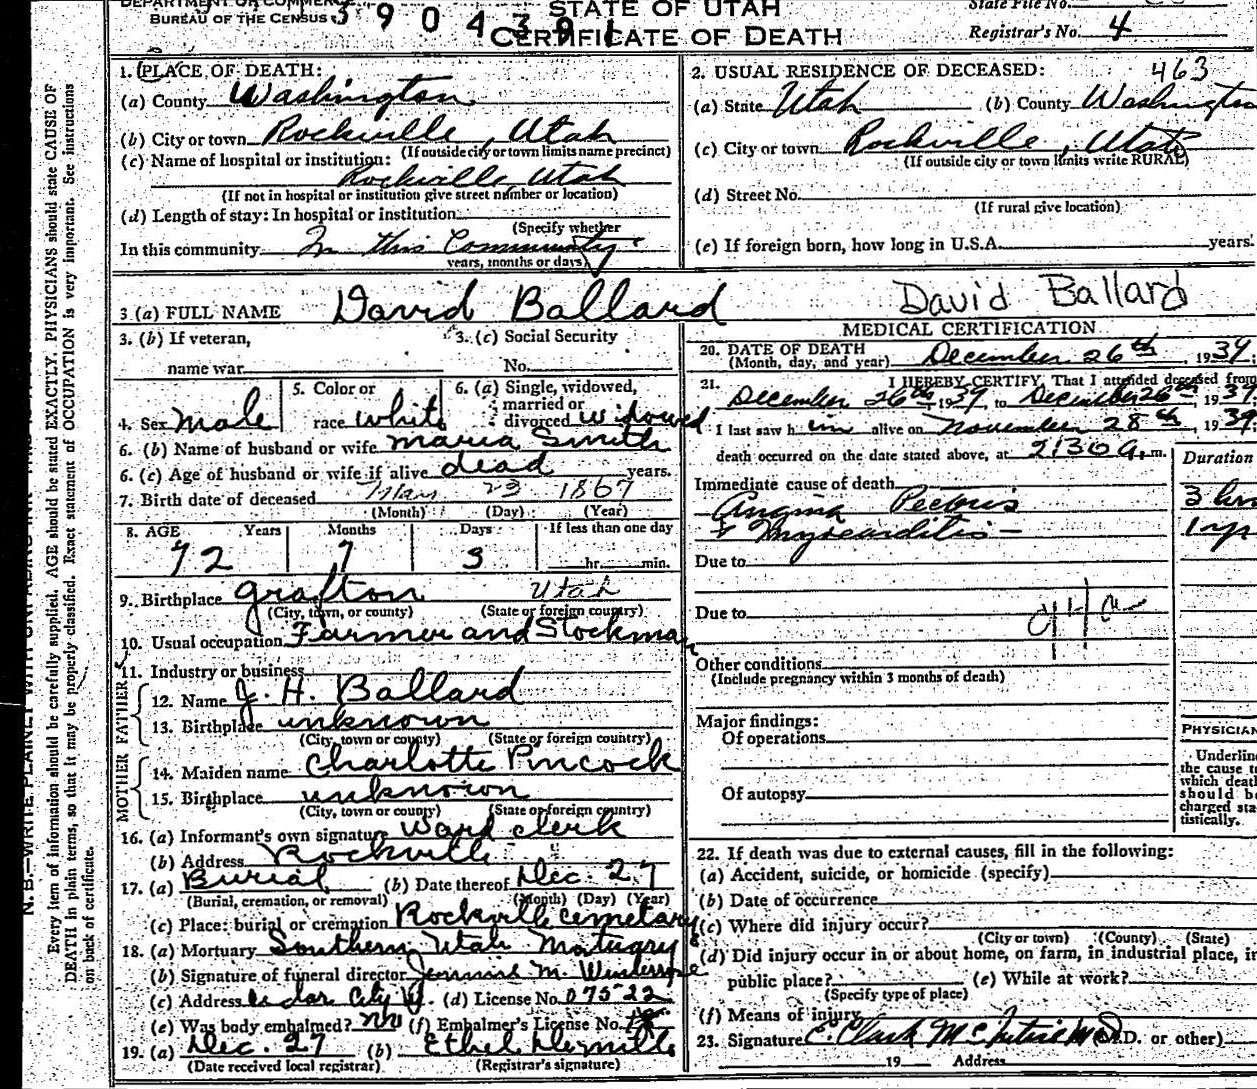 DEPARTMENT OF COMMERCE
BUREAU OF THE CENSUS
3904391
STATE OF UTAH
CERTIFICATE OF DEATH
State File No.
Registrar's No. 4
Every item of information should be carefully supplied. AGE should be stated EXACTLY. PHYSICIANS should state CAUSE OF
DEATH in plain terms, so that it may be properly classified. Exact statement of OCCUPATION is very important. See instructions
on back of certificate.
1. PLACE OF DEATH:
(a) County Washington
(b) City or town Rockville, Utah
(If outside city or town limits name precinct)
(c) Name of hospital or institution:
Rockville, Utah
(If not in hospital or institution give street number or location)
(d) Length of stay: In hospital or institution
(Specify whether
In this community In this Community
years, months or days)
2. USUAL RESIDENCE OF DECEASED: 463
(a) State Utah (b) County Washington
(c) City or town Rockville, Utah
(If outside city or town limits write RURAL)
(d) Street No.
(If rural give location)
(e) If foreign born, how long in U.S.A. years.
3 (a) FULL NAME David Ballard
David Ballard
3. (b) If veteran,
name war
3. (c) Social Security
No.
4. Sex Male
5. Color or
race white
6. (a) Single, widowed,
married or
divorced widowed
6. (b) Name of husband or wife Maria Smith
6. (c) Age of husband or wife if alive dead years.
7. Birth date of deceased 23 1867
(Month) (Day) (Year)
8. AGE Years Months Days If less than one day
72 7 3 hr. min.
9. Birthplace Grafton Utah
(City, town, or county) (State or foreign country)
10. Usual occupation Farmer and Stockman
11. Industry or business
FATHER
12. Name J. H. Ballard
13. Birthplace unknown
(City, town or county) (State or foreign country)
MOTHER
14. Maiden name Charlotte Pincock
15. Birthplace unknown
(City, town or county) (State or foreign country)
16. (a) Informant's own signature Ward clerk
(b) Address Rockville
17. (a) Burial (b) Date thereof Dec. 27
(Burial, cremation, or removal) (Month) (Day) (Year)
(c) Place: burial or cremation Rockville cemetary
18. (a) Mortuary Southern Utah Mortuary
(b) Signature of funeral director M.
(c) Address Cedar City (d) License No. 07522
(e) Was body embalmed? no (f) Embalmer's License No.
19. (a) Dec. 27 (b) Ethel Demille
(Date received local registrar) (Registrar's signature)
MEDICAL CERTIFICATION
20. DATE OF DEATH
(Month, day, and year) December 26th, 1939.
21. I HEREBY CERTIFY, That I attended deceased from
December 26th, 1939, to December 26th, 1939.
I last saw him alive on November 28th, 1939.
death occurred on the date stated above, at 2:30 a.m.
Duration
Immediate cause of death
Angina Pectoris 3 hrs
& Myocarditis - 1 yr
Due to
Due to
Other conditions
(Include pregnancy within 3 months of death)
Major findings:
Of operations
Of autopsy
PHYSICIAN
Underline
the cause to
which death
should be
charged sta-
tistically.
22. If death was due to external causes, fill in the following:
(a) Accident, suicide, or homicide (specify)
(b) Date of occurrence
(c) Where did injury occur?
(City or town) (County) (State)
(d) Did injury occur in or about home, on farm, in industrial place, in
public place? (e) While at work?
(Specify type of place)
(f) Means of injury
23. Signature C. Clark McIntire M.D. (M.D. or other)
19 Address